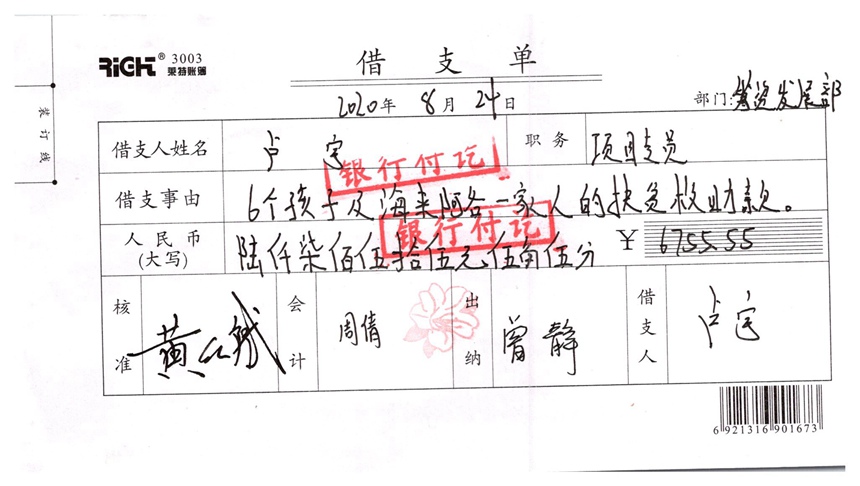 RiGHT® 3003
莱特账簿
借支单
2020年 8月 24日
部门:筹资发展部
装订线
借支人姓名 卢宇 职务 项目专员
银行付讫
借支事由 6个孩子及海来阿各一家人的扶贫救助款。
银行付讫
人民币(大写) 陆仟柒佰伍拾伍元伍角伍分 ¥ 6755.55
核准 会计 周倩 出纳 曾静 借支人 卢宇
6 921316 901673